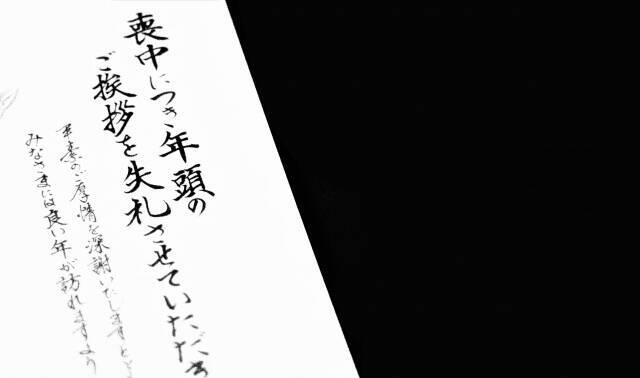 喪中につき年頭の
ご挨拶を失礼させていただき
平素のご厚情を深謝いたしますと
みなさまには良い年が訪れますよう